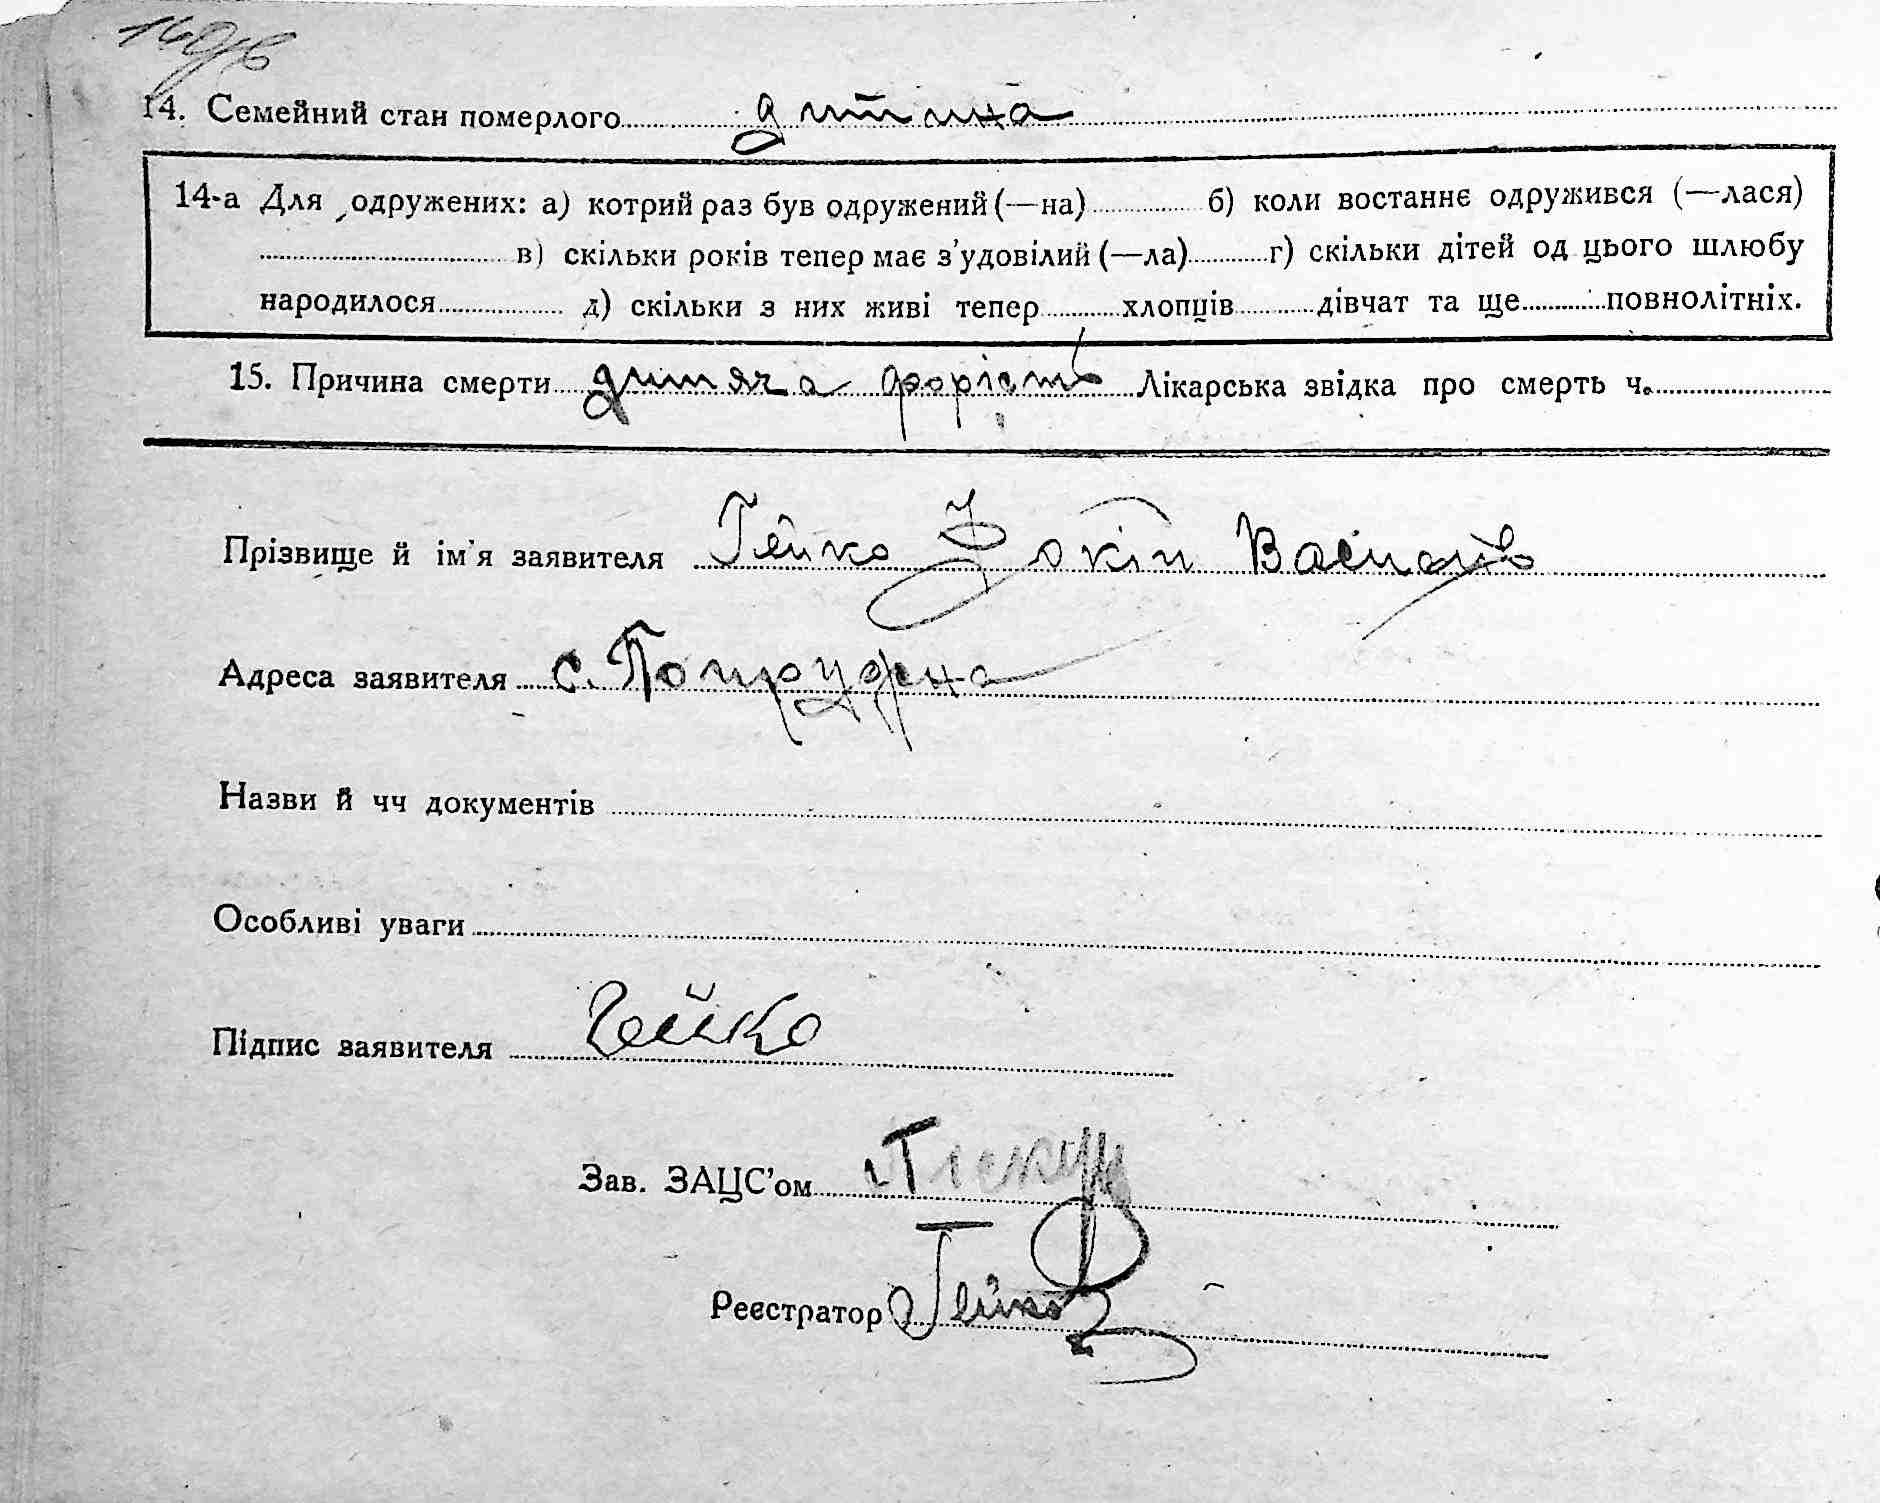 149в
14. Семейний стан померлого дитина
14-а Для одружених: а) котрий раз був одружений (—на) б) коли востаннє одружився (—лася)
в) скільки років тепер має з’удовілий (—ла) г) скільки дітей од цього шлюбу
народилося д) скільки з них живі тепер хлопців дівчат та ще повнолітніх.
15. Причина смерти дитяча Лікарська звідка про смерть ч.
Прізвище й ім’я заявителя Гейко Йокіп
Адреса заявителя с.
Назви й чч документів
Особливі уваги
Підпис заявителя Гейко
Зав. ЗАЦС’ом Піскун
Реєстратор Гейко